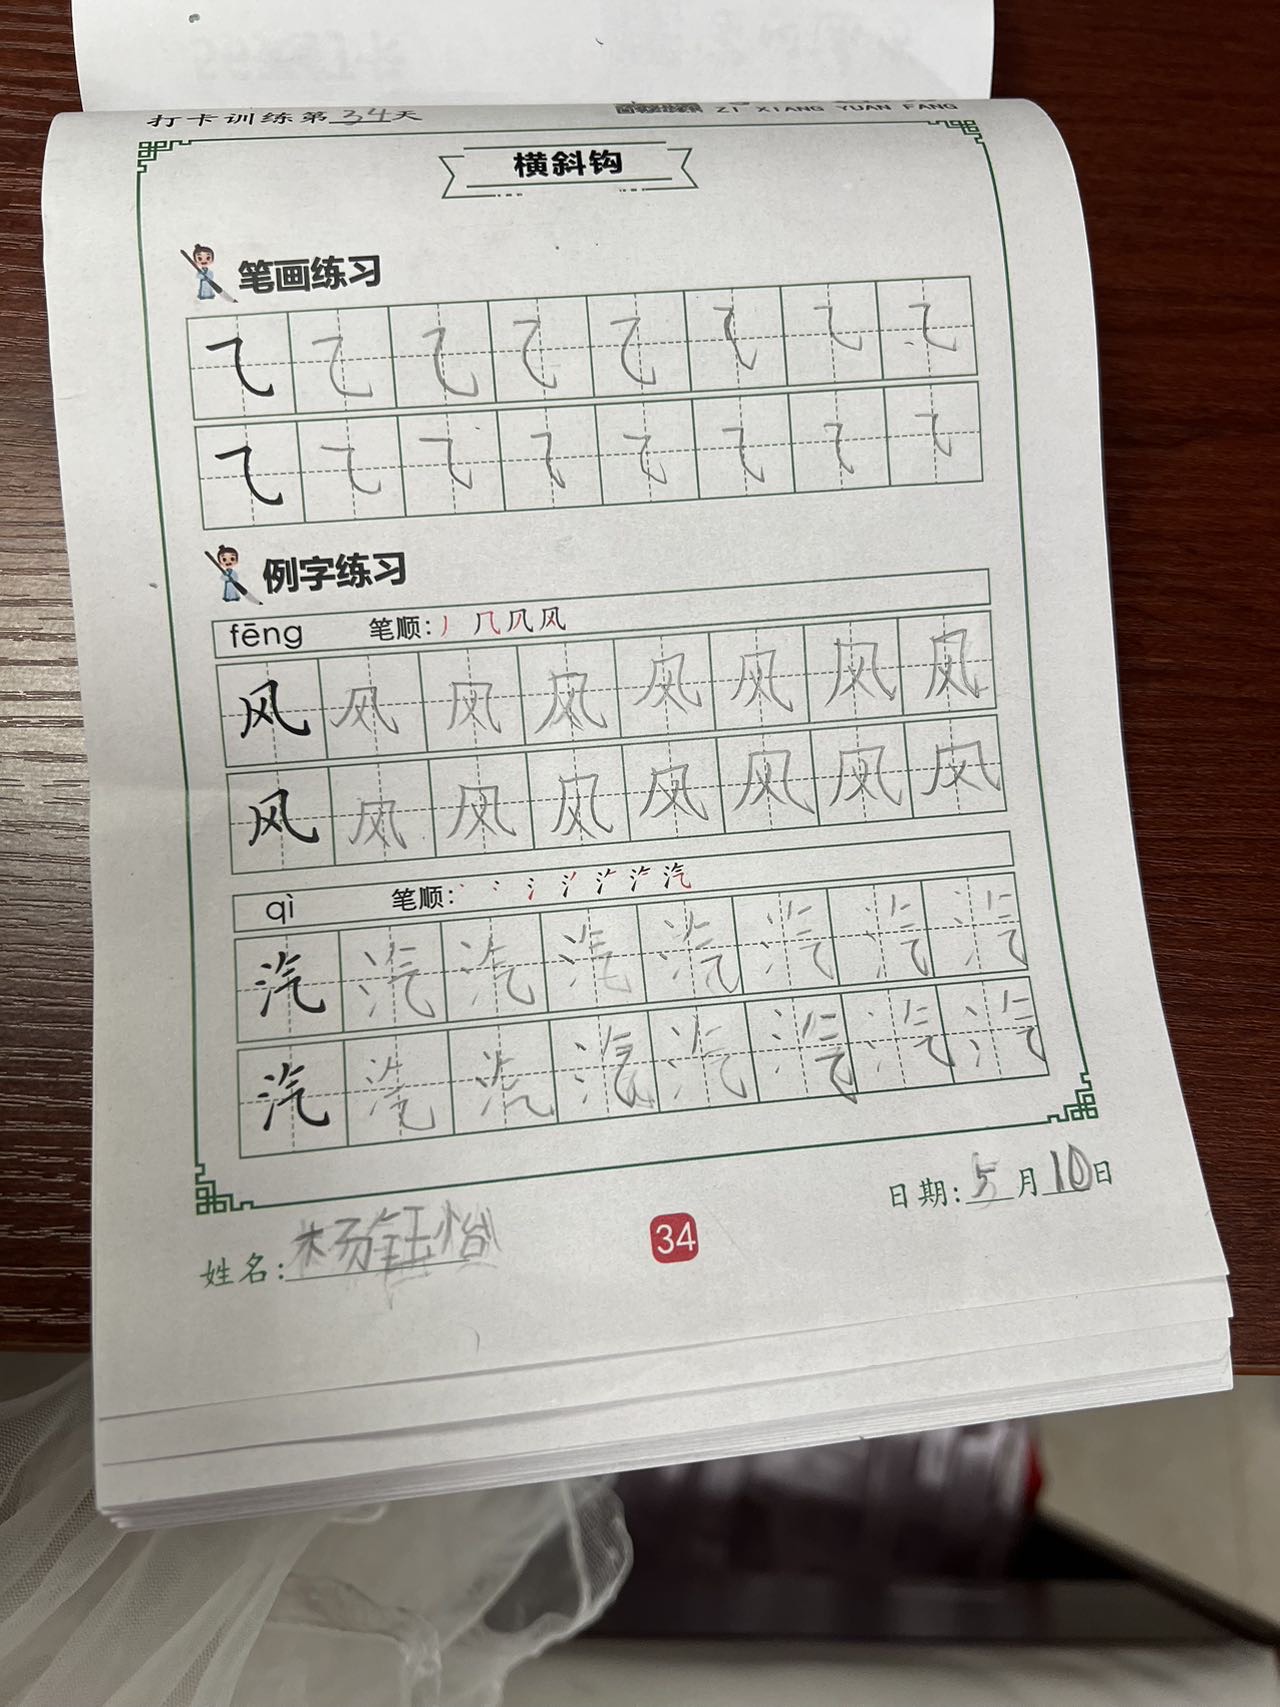 打卡训练第34天
ZI XIANG YUAN FANG
横斜钩
笔画练习
例字练习
fēng 笔顺: 丿 几 凤 风
风 风 风 风 风 风 风 风
风 风 风 风 风 风 风 风
qì 笔顺:
汽 汽 汽 汽 汽 汽 汽 汽
汽 汽 汽 汽 汽 汽 汽 汽
日期: 5月10日
姓名: 杨钰怡
34